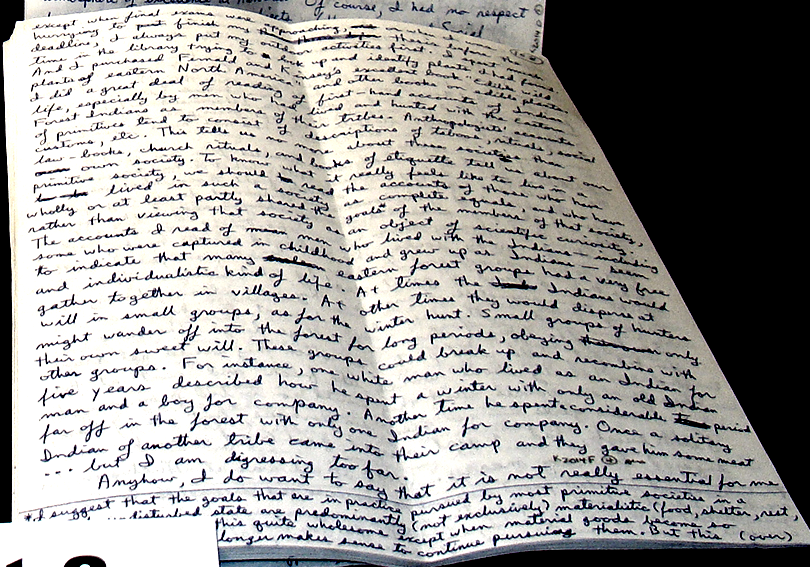 Of course, I had no respect
except when final exams were approaching,
hurrying to put finish my
deadline, I always put my outdoor activities first. I spent
time in the library trying to look up and identify plants I had found.
And I purchased Fernald and Kinsey's excellent book "Edible Wild
plants of eastern North America" and other books
I did a great deal of reading of first-hand accounts of Indian
life, especially by men who had lived and hunted with the eastern
Forest Indians as members of their tribes. Anthropologists' accounts
of primitives tend to consist of descriptions of taboos, rituals, social
customs, etc. This tells us no more about these societies than
law-books, church rituals, and books of etiquette tell about our
own society. To know what it really feels like to live in a
primitive society, we should read the accounts of those who have
lived in such a society as complete equals, and who have
wholly or at least partly shared the goals of the members of that society,
rather than viewing that society as an object of scientific curiosity.
The accounts I read of men who lived with the Indians — including
some who were captured in childhood and grew up as Indians — seem
to indicate that many eastern forest groups had a very free
and individualistic kind of life. At times the Indians would
gather together in villages. At other times they would disperse at
will in small groups, as for the winter hunt. Small groups of hunters
might wander off into the forest for long periods, obeying only
their own sweet will. These groups could break up and recombine with
other groups. For instance, one white man who lived as an Indian for
five years described how he spent a winter with only an old Indian
man and a boy for company. Another time he spent considerable period
far off in the forest with only one Indian for company. Once a solitary
Indian of another tribe came into their camp and they gave him some meat
... but I am digressing too far.
Anyhow, I do want to say that it is not really essential for me
* I suggest that the goals that are in practice pursued by most primitive societies in a
undisturbed state are predominantly (not exclusively) materialistic (food, shelter, rest,
this quite wholesome except when material goods become so
longer makes sense to continue pursuing them. But this (over)